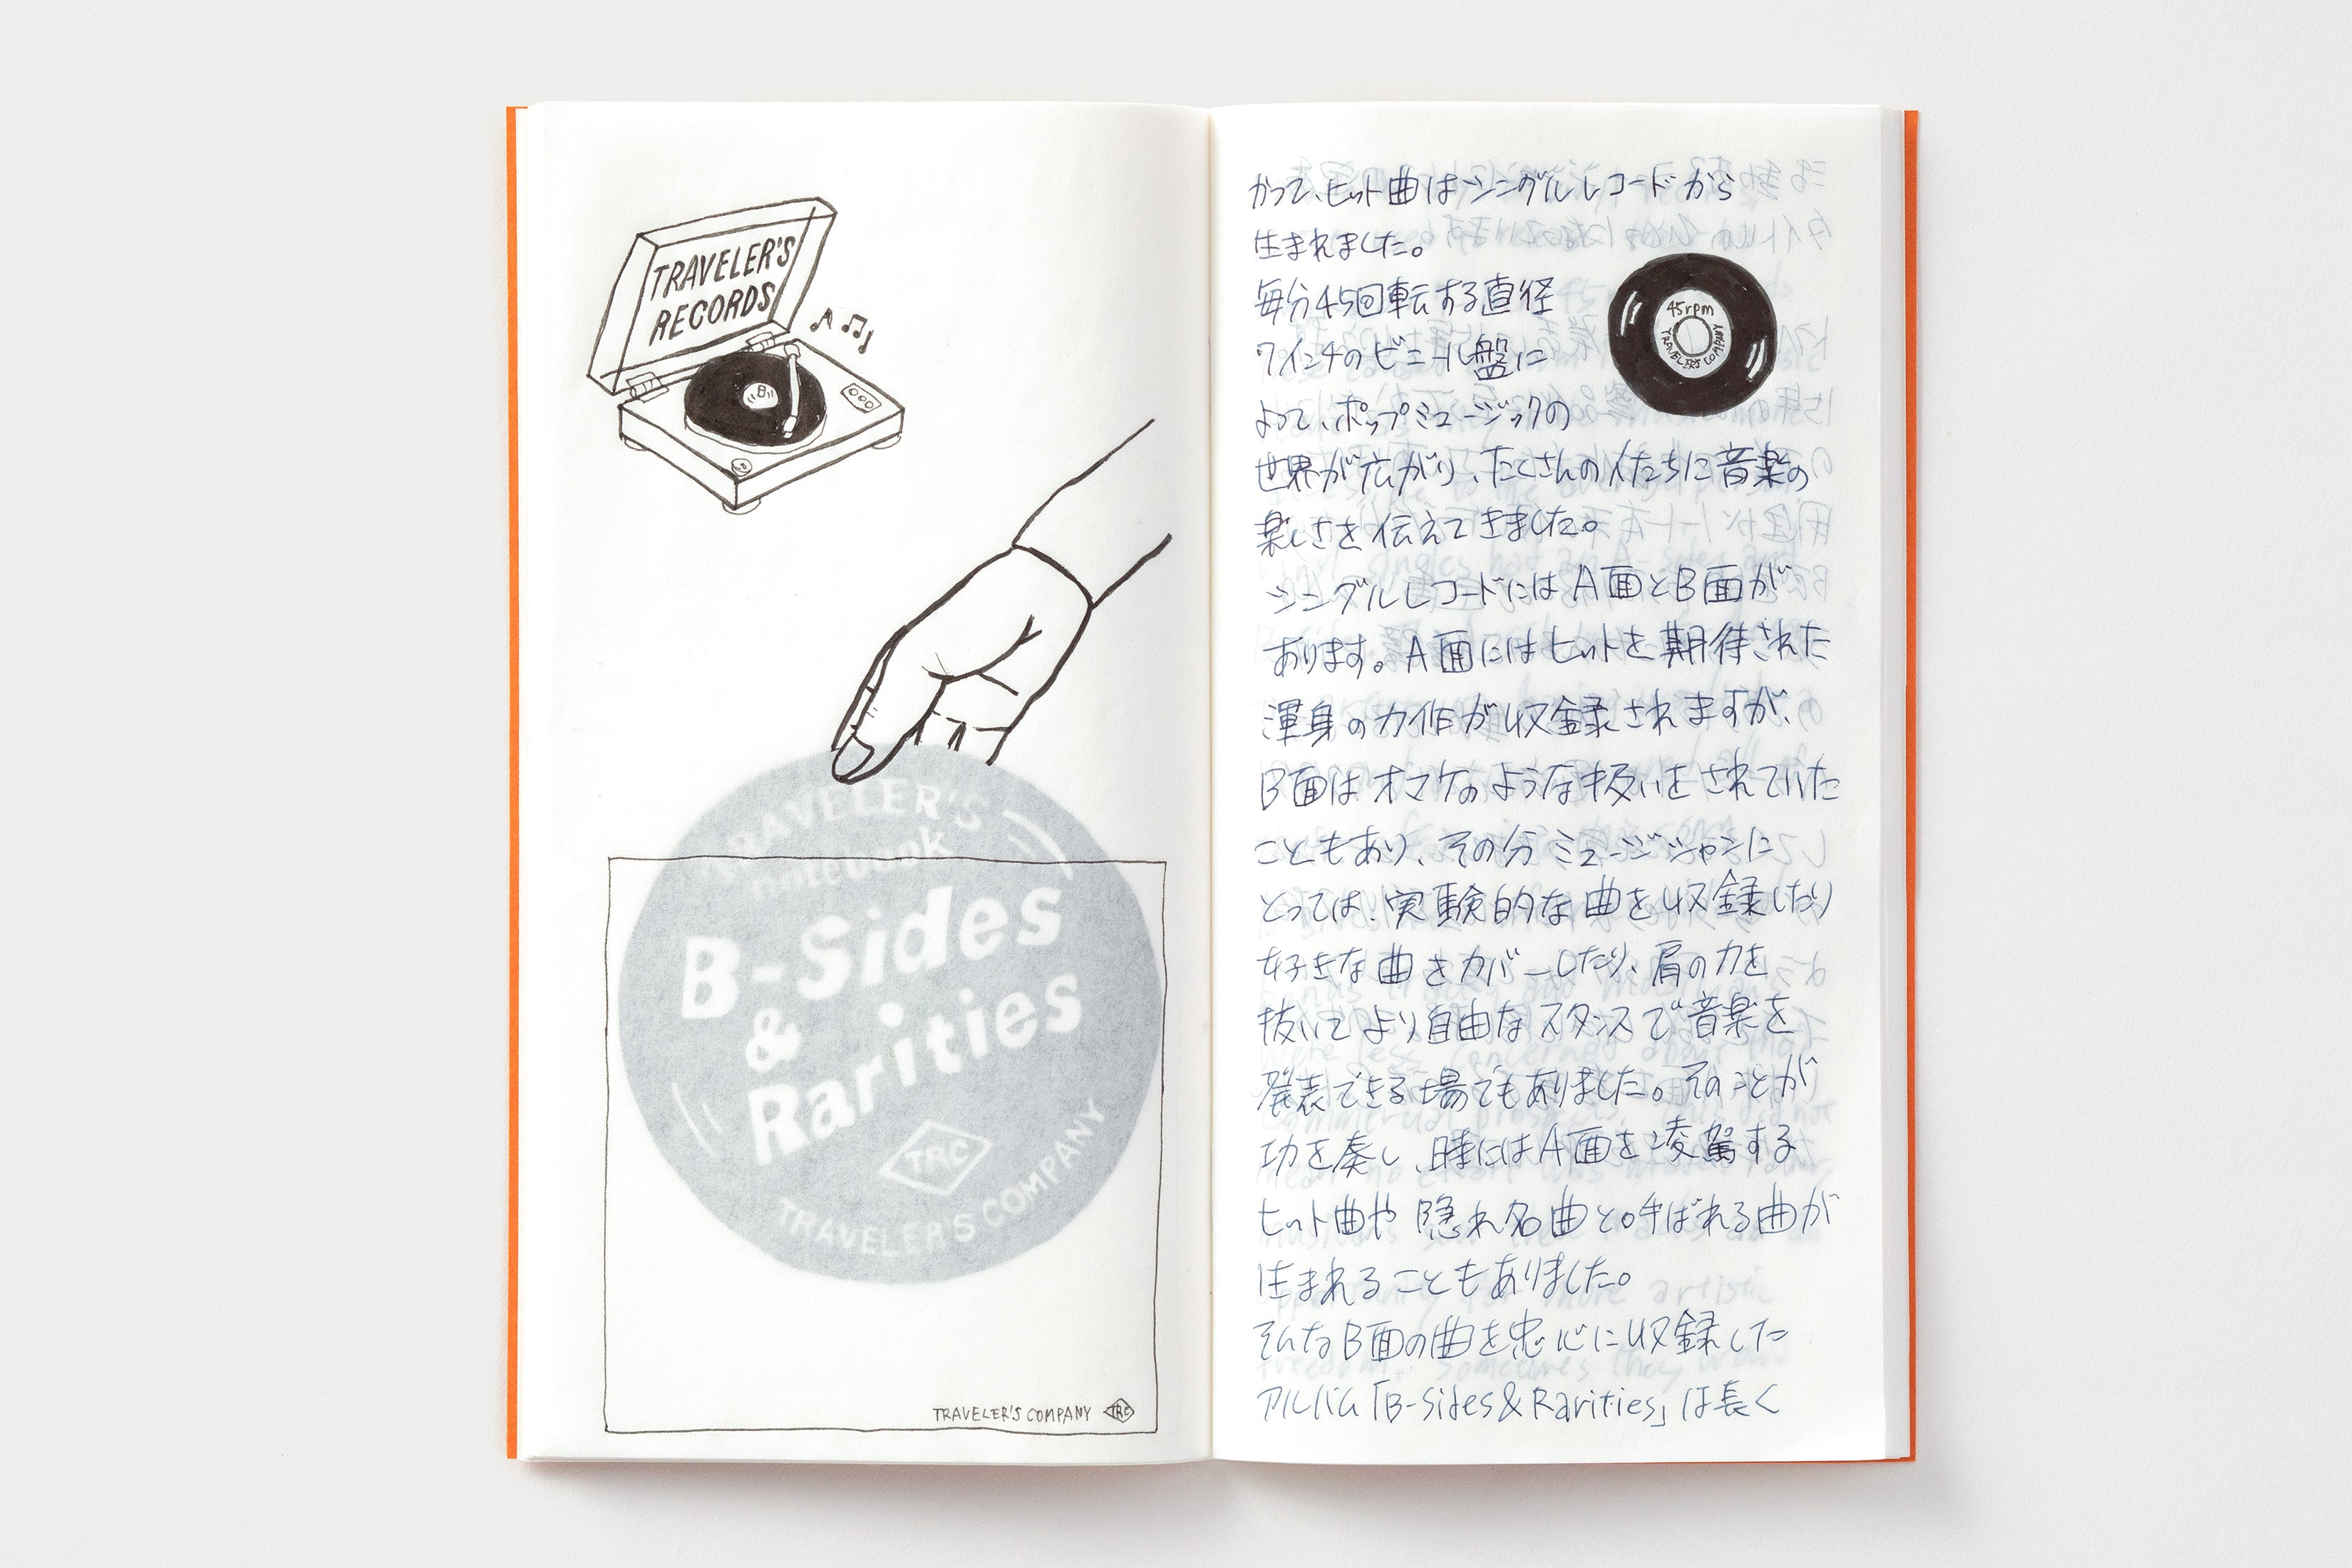 TRAVELER'S
RECORDS
B
TRAVELER'S
notebook
B-Sides
&
Rarities
TRC
TRAVELER'S COMPANY
TRAVELER'S COMPANY TRC
かつて、ヒット曲はシングルレコードから
生まれました。
毎分45回転する直径
7インチのビニール盤に
よって、ポップミュージックの
世界が広がり、たくさんの人たちに音楽の
楽しさを伝えてきました。
シングルレコードにはA面とB面が
あります。A面にはヒットを期待された
渾身の力作が収録されますが、
B面はオマケのような扱いをされていた
こともあり、その分ミュージシャンに
とっては、実験的な曲を収録したり
好きな曲をカバーしたり、肩の力を
抜いてより自由なスタンスで音楽を
発表できる場でもありました。そのことが
功を奏し、時にはA面を凌駕する
ヒット曲や隠れ名曲と呼ばれる曲が
生まれることもありました。
そんなB面の曲を忠心に収録した
アルバム「B-sides&Rarities」は長く
45rpm
TRAVELER'S COMPANY